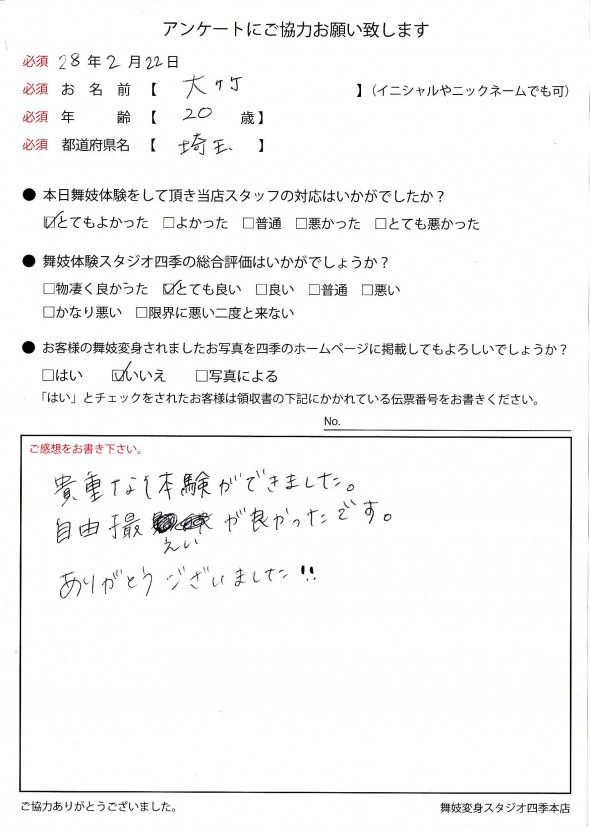 アンケートにご協力お願い致します
必須 28年2月22日
必須 お名前【 大竹 】(イニシャルやニックネームでも可)
必須 年齢【 20 歳】
必須 都道府県名【 埼玉 】
● 本日舞妓体験をして頂き当店スタッフの対応はいかがでしたか?
☑とてもよかった □よかった □普通 □悪かった □とても悪かった
● 舞妓体験スタジオ四季の総合評価はいかがでしょうか?
□物凄く良かった ☑とても良い □良い □普通 □悪い
□かなり悪い □限界に悪い二度と来ない
● お客様の舞妓変身されましたお写真を四季のホームページに掲載してもよろしいでしょうか?
□はい ☑いいえ □写真による
「はい」とチェックをされたお客様は領収書の下記にかかれている伝票番号をお書きください。
No.
ご感想をお書き下さい。
貴重な体験ができました。
自由撮 が良かったです。
えい
ありがとうございました!!
ご協力ありがとうございました。 舞妓変身スタジオ四季本店